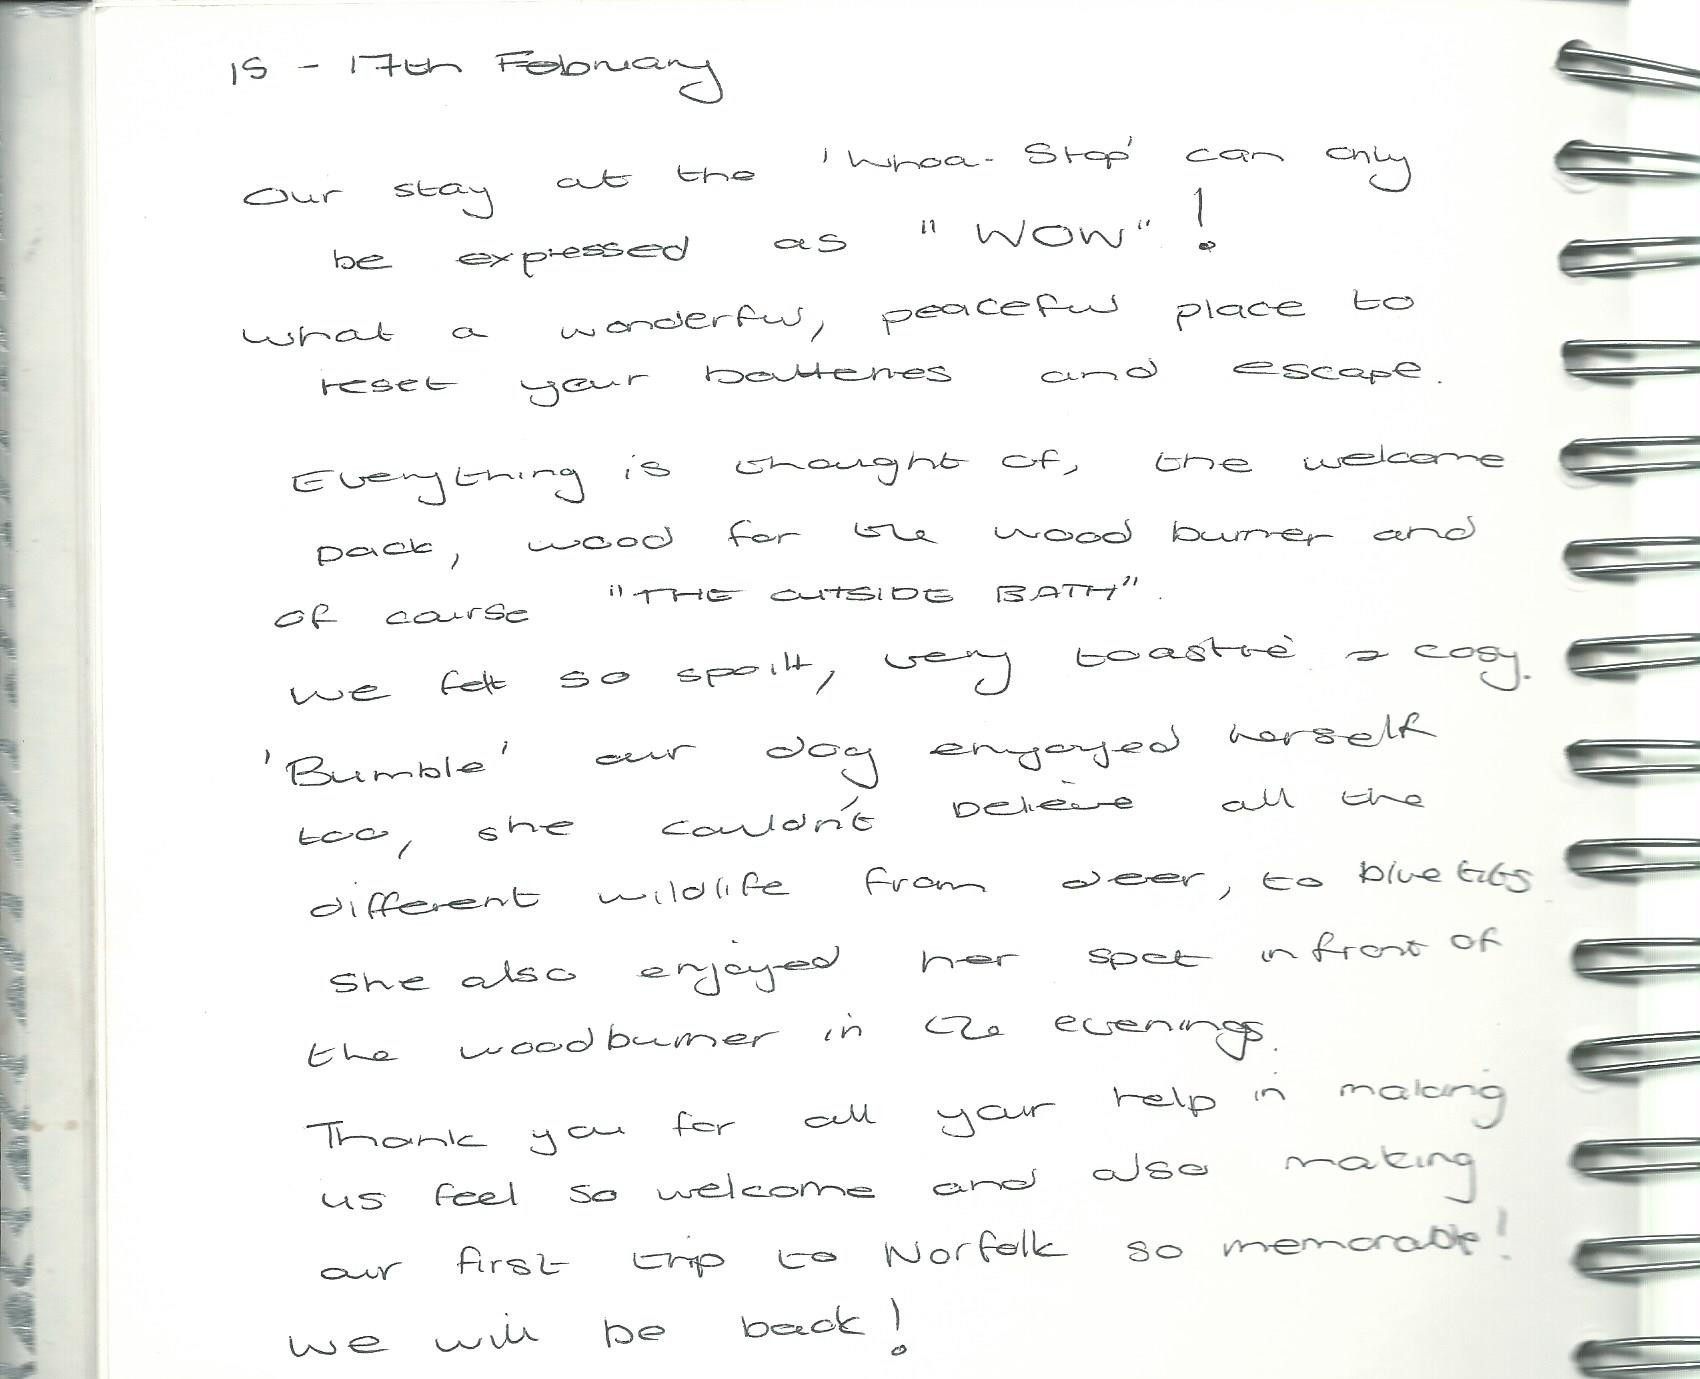 15 - 17th February
Our stay at the 'Whoa-Stop' can only
be expressed as "WOW"!
What a wonderful, peaceful place to
reset your batteries and escape.
Everything is thought of, the welcome
pack, wood for the wood burner and
of course "THE OUTSIDE BATH".
We felt so spoilt, very toastie & cosy.
'Bumble' our dog enjoyed herself
too, she couldn't believe all the
different wildlife from deer, to blue tits
She also enjoyed her spot infront of
the woodburner in the evenings.
Thank you for all your help in making
us feel so welcome and also making
our first trip to Norfolk so memorable!
We will be back!